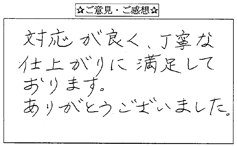 ☆ご意見・ご感想☆
対応が良く、丁寧な
仕上がりに満足して
おります。
ありがとうございました。